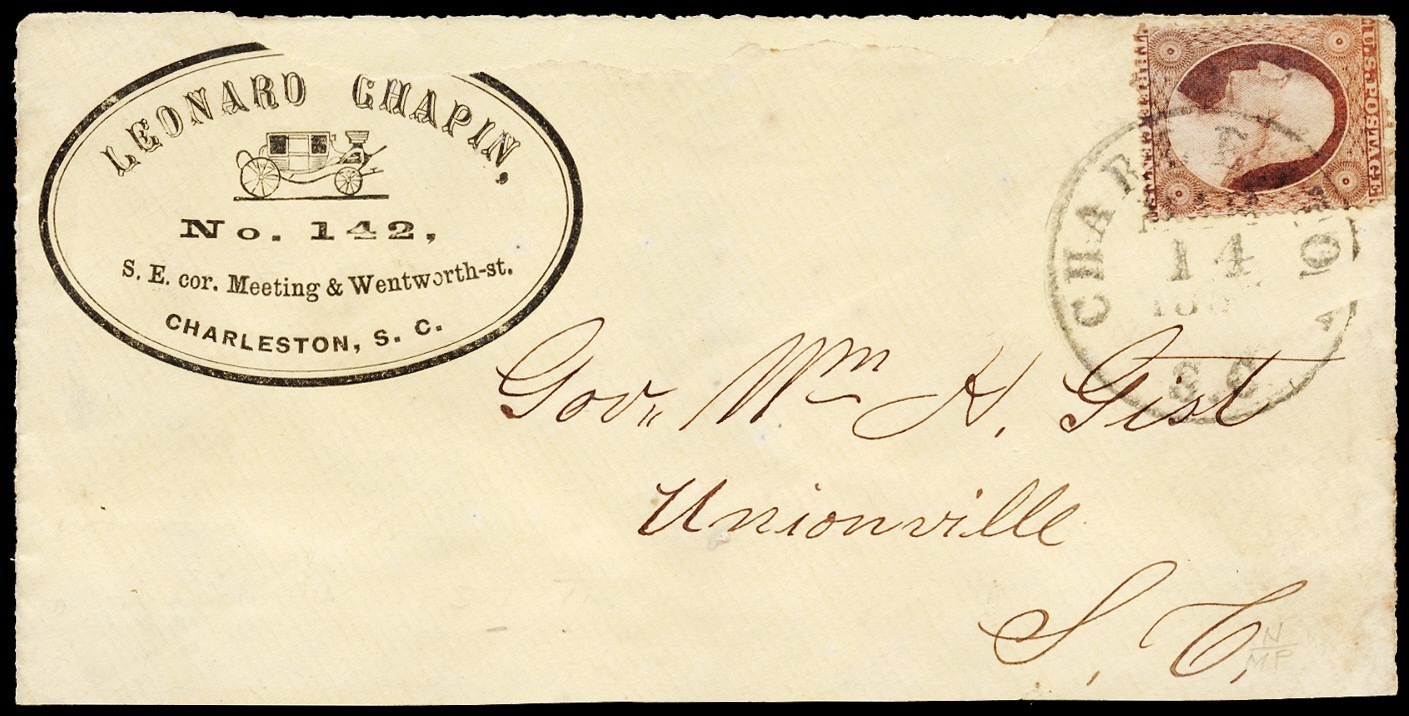 LEONARD CHAPIN,
No. 142,
S. E. cor. Meeting & Wentworth-st.
CHARLESTON, S. C.
U.S. POSTAGE
CHARLESTON
14
S.C.
Gov. Wm H. Gist
Unionville
S. C.
N
MP